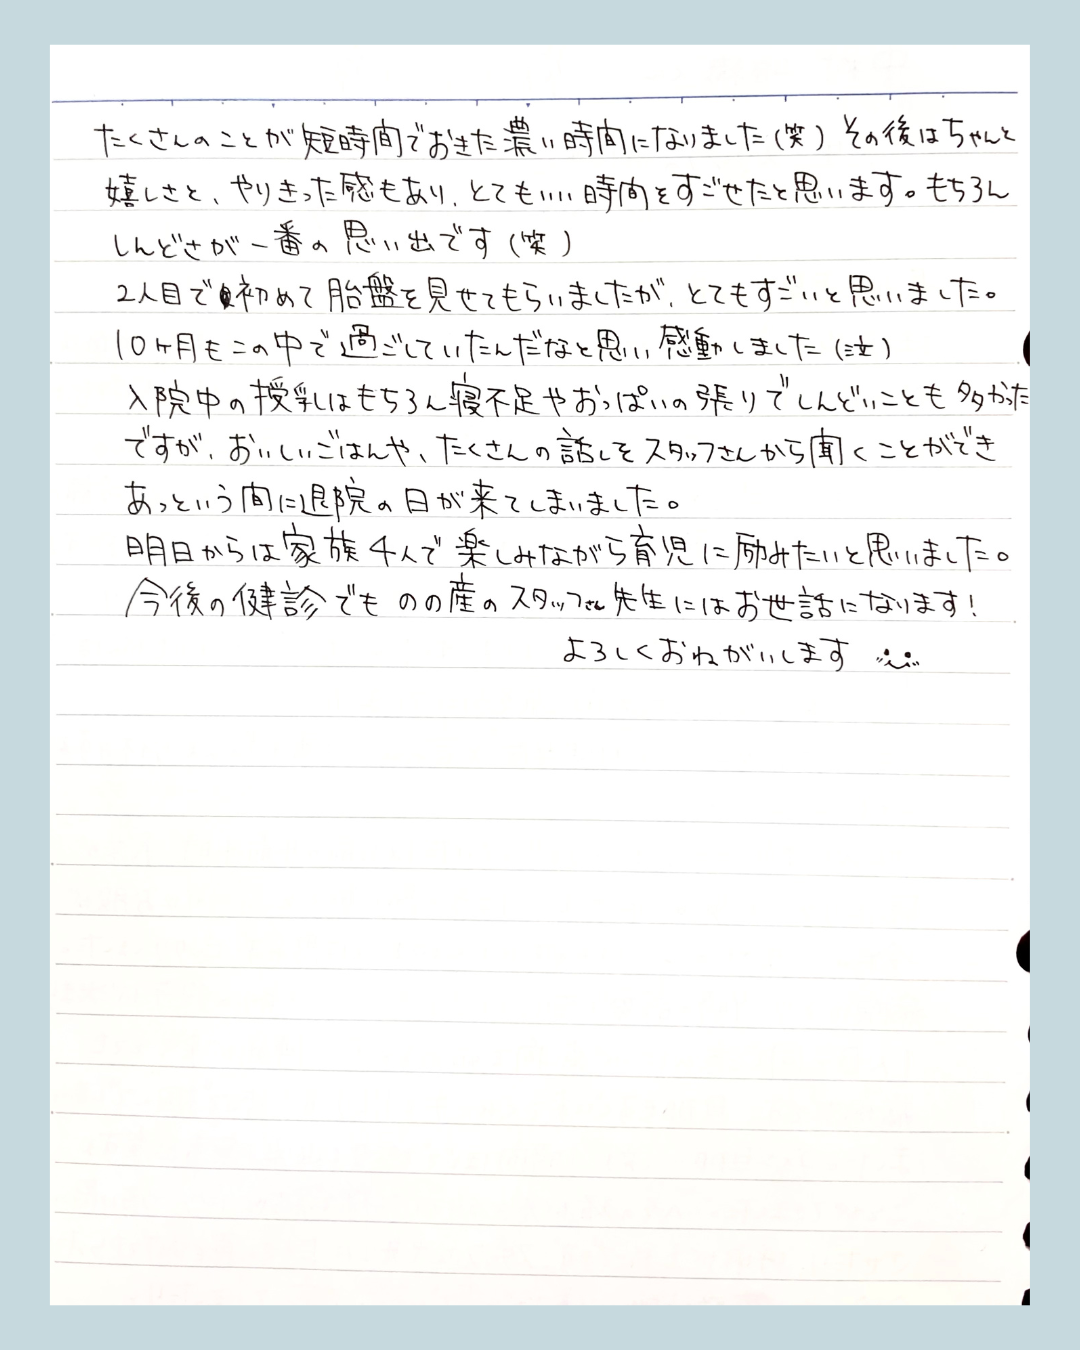 たくさんのことが短時間でおきた濃い時間になりました(笑) その後はちゃんと
嬉しさと、やりきった感もあり、とてもいい時間をすごせたと思います。もちろん
しんどさが一番の思い出です(笑)
2人目で初めて胎盤を見せてもらいましたが、とてもすごいと思いました。
10ヶ月もこの中で過ごしていたんだなと思い感動しました(泣)
入院中の授乳はもちろん寝不足やおっぱいの張りでしんどいことも多かった
ですが、おいしいごはんや、たくさんの話しをスタッフさんから聞くことができ
あっという間に退院の日が来てしまいました。
明日からは家族4人で楽しみながら育児に励みたいと思いました。
今後の健診でも のの産のスタッフさん先生にはお世話になります!
よろしくおねがいします